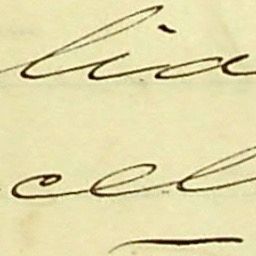 lia
cel